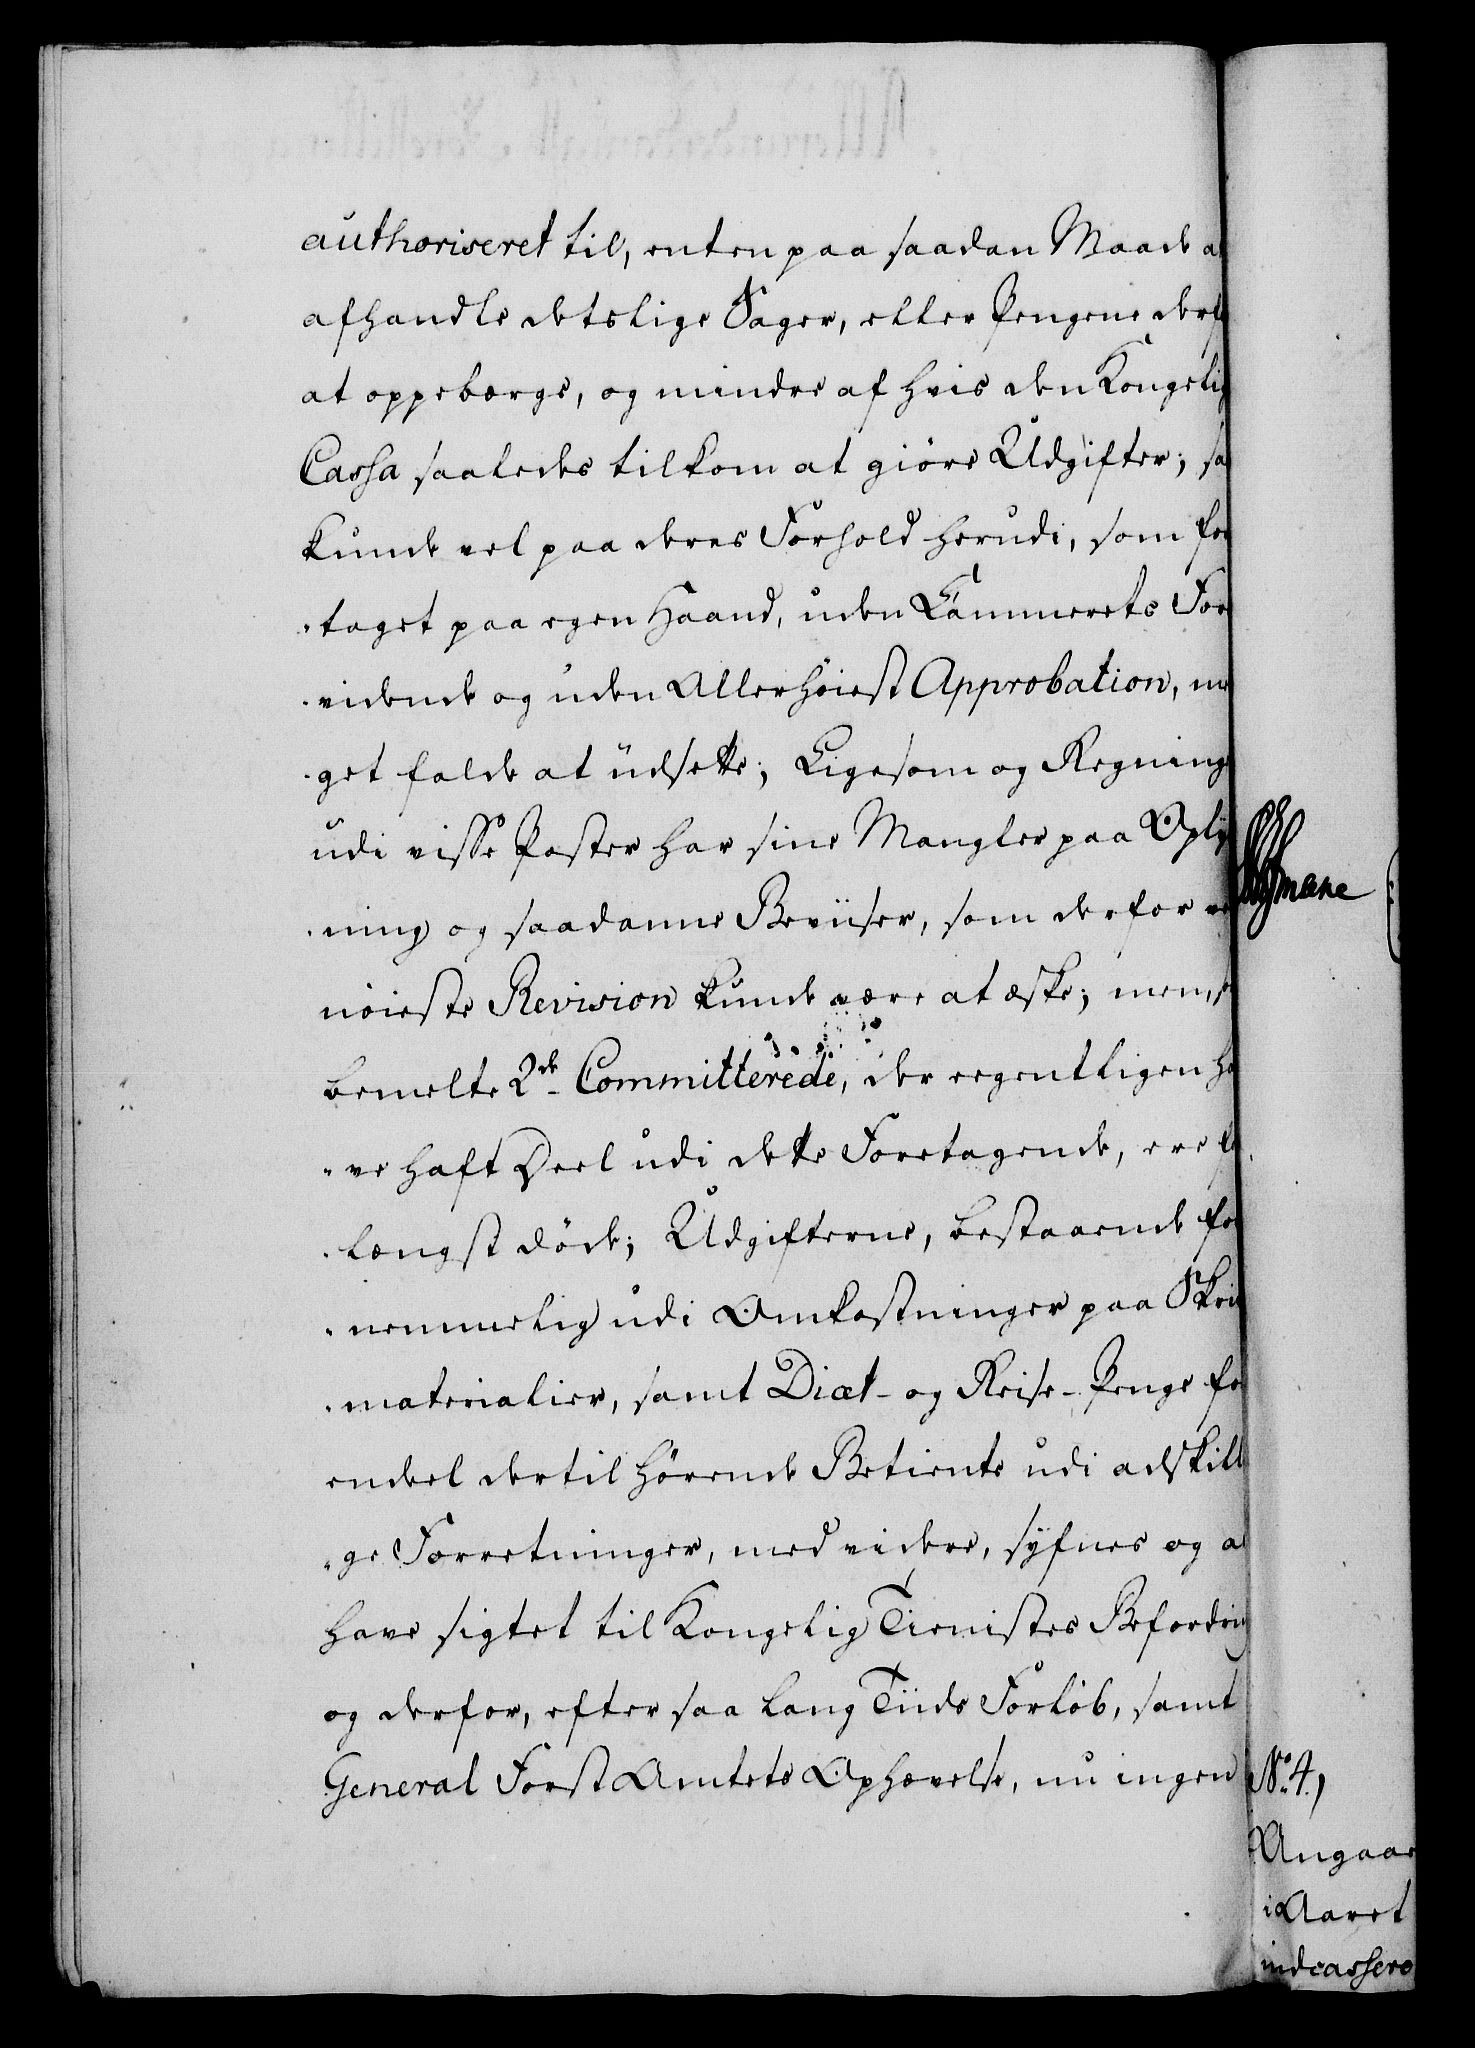 authoriseret til, enten paa saadan Maade a
afhandle detslige Sager, eller Pengene derf
at oppebærge, og mindre af hvis den Kongelig
Cassa saaledes tilkom at giöre Udgifter; sa
kunde vel paa deres Forhold herudi, som for
taget paa egen Haand, uden Cammerets For
vidende og uden Allerhöiest Approbation, me
get falde at udsette; Ligesom og Regning
udi visse Poster har sine Mangler paa Oply
ning og saadanne Beviiser, som derfor ve
nöieste Revision kunde være at æske; men,
bemelte 2de Committerede, der eegentligen ha
ve haft Deel udi dette Foretagende, ere f
længst döde; Udgifterne, bestaaende for
nemmelig udi Omkostninger paa Skri
materialier, samt Diæt- og Reise-Penge for
endeel dertil hörende Betiente udi adskill
ge Forretninger, med videre, syfnes og a
have sigtet til Kongelig Tienistes Befordring
og derfor, efter saa lang Tiids Forlöb, samt
General Forst Amtets Ophævelse, nu ingen
No. 4.)
Angaae
i Aaret
indcassere